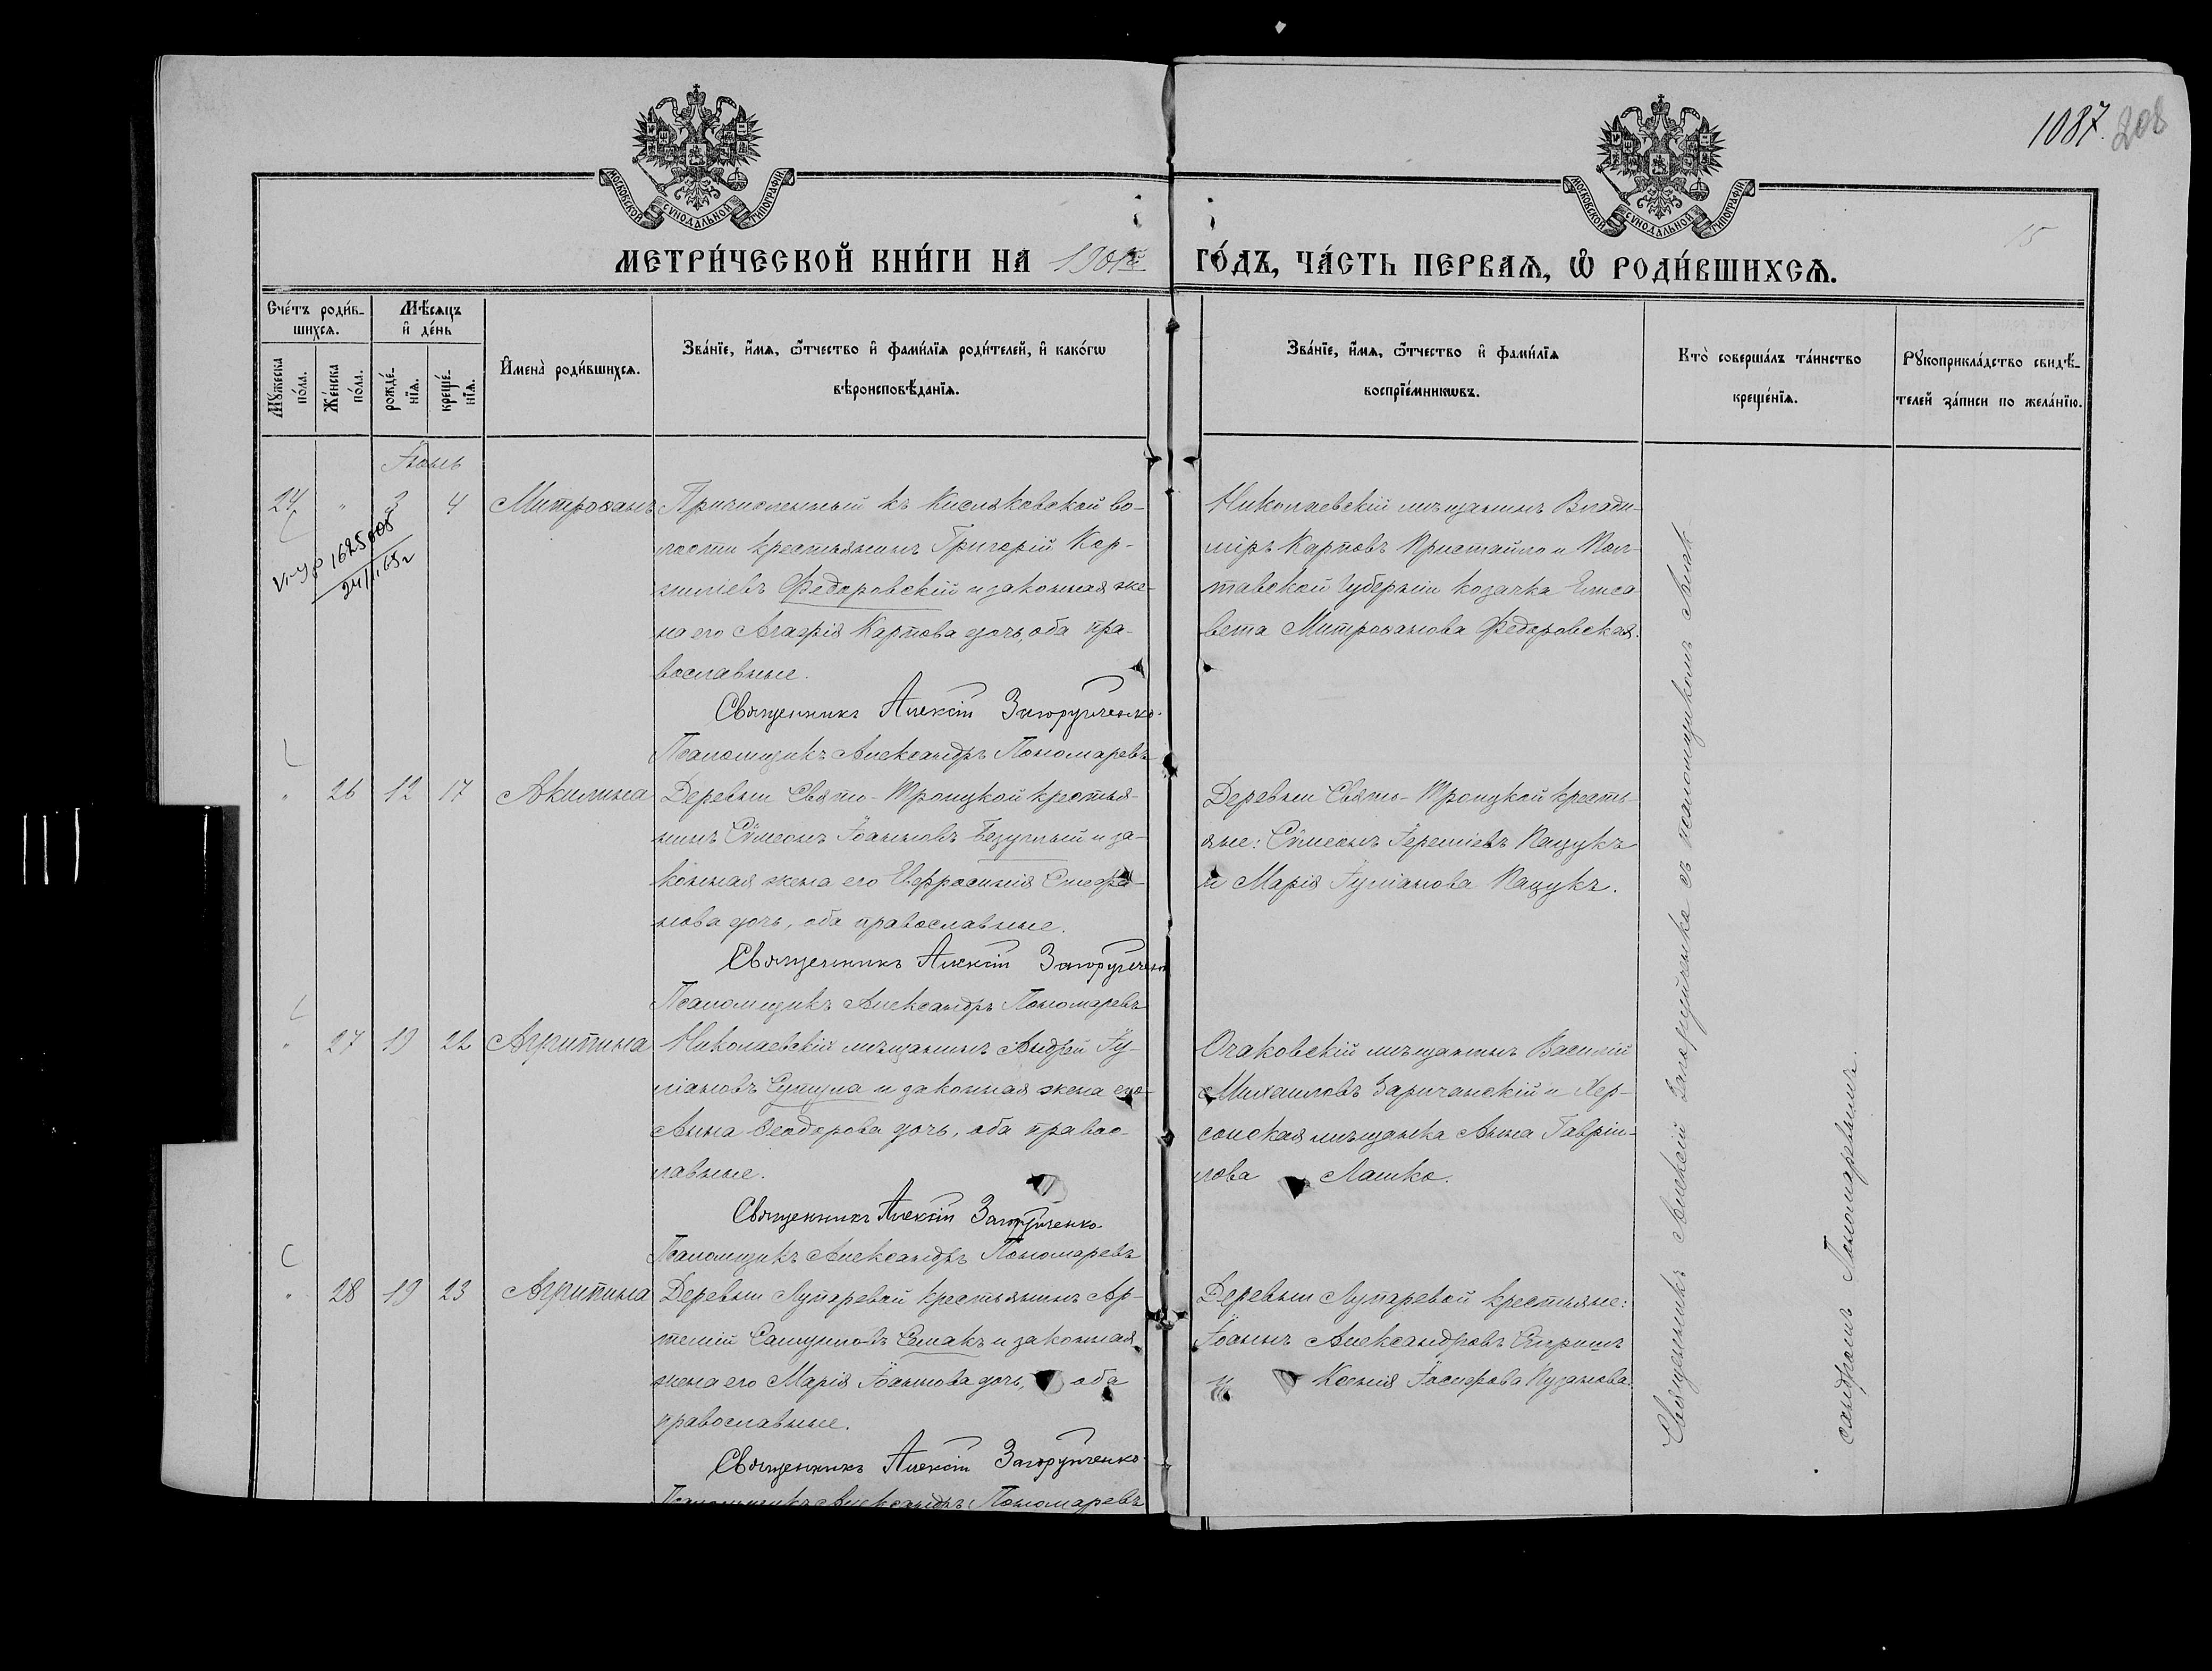 1087. 208
15
МОСКОВСКОЙ СУНОДАЛЬНОЙ ТИПОГРАФІИ
МОСКОВСКОЙ СУНОДАЛЬНОЙ ТИПОГРАФІИ
МЕТРИ́ЧЕСКОЙ КНИ́ГИ НА 1901й ГО́ДЪ, ЧА́СТЬ ПЕРВАѦ, Ѽ РОДИ́ВШИХСѦ.
Сче́тъ роди́в-
шихсѧ.
Мꙋ́жеска
по́ла.
Же́нска
по́ла.
Мѣ́сѧцъ
и҆ де́нь
рожде́-
нїѧ.
креще́-
нїѧ.
И҆мена̀ роди́вшихсѧ.
Зва́нїе, и҆́мѧ, ѻ҆́тчество и҆ фами́лїѧ роди́телей, и҆ како́гѡ
вѣроисповѣ́данїѧ.
Зва́нїе, и҆́мѧ, ѻ҆́тчество и҆ фами́лїѧ
воспрїе́мникѡвъ.
Кто̀ соверша́лъ та́инство
креще́нїѧ.
Рꙋкоприкла́дство свидѣ́-
телей за́писи по жела́нїю.
Іюнь
24 " 3 4 Митрофанъ
Причисленный къ Кисляковской во-
лости крестьянинъ Григорій Кор-
ниліевъ Федоровскій и законная же-
на его Агафія Карпова дочь, оба пра-
вославные.
Священникъ Алексій Загоруйченко.
Псаломщикъ Александръ Пономаревъ
Николаевскій мѣщанинъ Влади-
міръ Карповъ Присташло и Пол-
тавской Губерніи козачка Елиса
вета Митрофанова Федоровская.
24/II 65 г
" 26 12 17 Акилина
Деревни Свято-Троицкой крестья-
нинъ Сѵмеонъ Іоанновъ Безуглый и за-
конная жена его Евфросинія Стефа-
нова дочь, оба православные.
Священникъ Алексій Загоруйченко
Псаломщикъ Александръ Пономаревъ
Деревни Свято-Троицкой кресть-
яне: Сѵмеонъ Іереміевъ Пацукъ
и Марія Іуліанова Пацукъ.
" 27 19 22 Агрипина
Николаевскій мѣщанинъ Андрей Іу-
ліановъ и законная жена его
Анна Ѳеодорова дочь, оба правос-
лавные.
Священникъ Алексій Загоруйченко.
Псаломщикъ Александръ Пономаревъ
Очаковскій мѣщанинъ Василій
Михаиловъ Заричанскій и Хер-
сонская мѣщанка Анна Гаврiи-
лова Лашко.
" 28 19 23 Агрипина
Деревни Лупаревой крестьянинъ Ар-
темій Самуиловъ Семакъ и законная
жена его Марія Іоаннова дочь, оба
православные.
Священникъ Алексій Загоруйченко.
Псаломщикъ Александръ Пономаревъ
Деревни Лупаревой крестьяне:
Іоаннъ Александровъ
и Ксенія Іосифова Пузанова.
Священникъ Алексій Загоруйченко съ псаломщикомъ Алек
сандромъ Пономаревымъ.